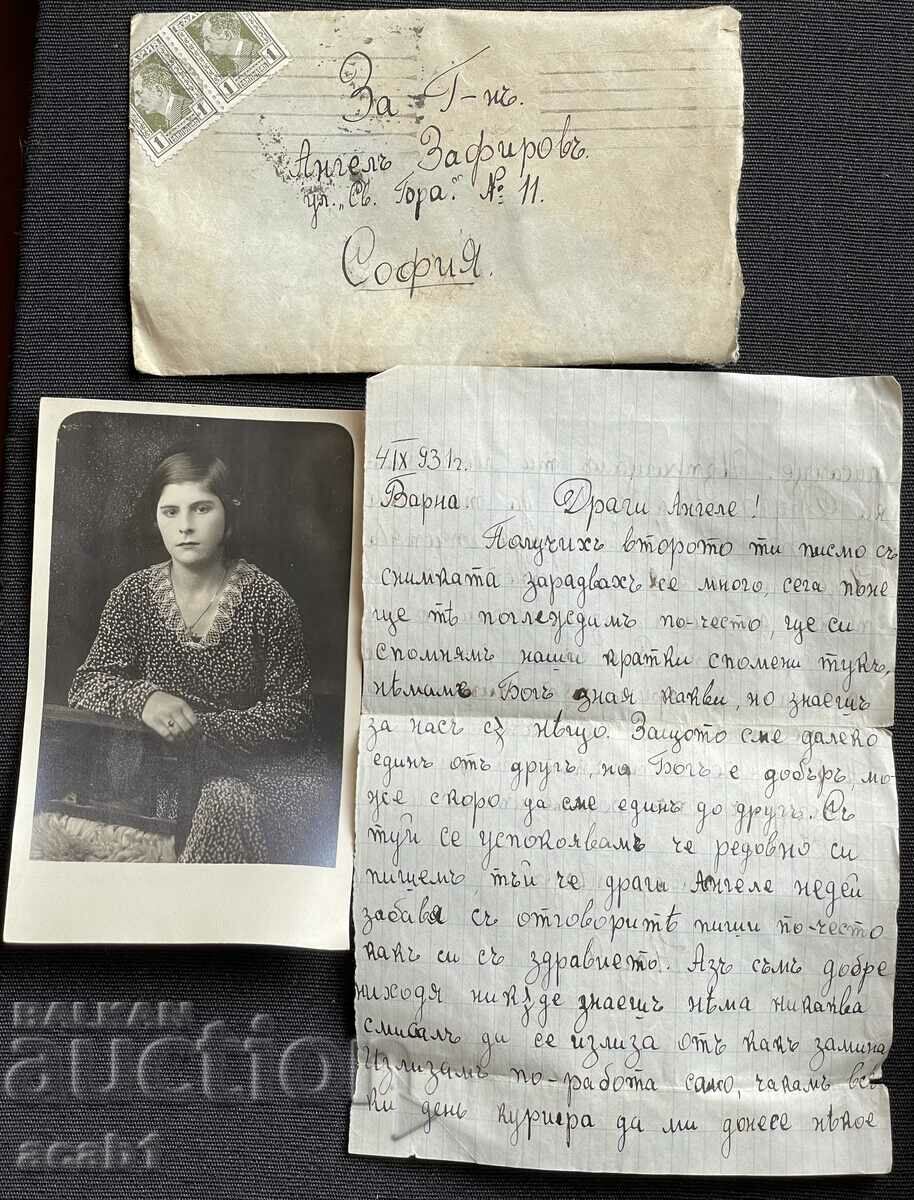 За Г-нъ.
Ангелъ Зафировъ.
ул. „Св. Гора." № 11.
София.
1
1
4 IX 931 г.
Варна. Драги Ангеле!
Получихъ второто ти писмо съ
снимката зарадвахъ се много, сега поне
ще тѣ поглеждамъ по-често, ще си
спомнямъ наши кратки спомени тукъ,
нѣмамъ Богъ зная какви, но знаешъ
за насъ сѫ нѣщо. Защото сме далеко
единъ отъ другъ, но Богъ е добъръ, мо-
же скоро да сме единъ до другъ. Съ
туй се успокоявамъ че редовно си
пишемъ, тъй че драги Ангеле недей
забавя съ отговоритѣ пиши по-често
какъ си съ здравието. Азъ съмъ добре
ниходя никѫде знаешъ нѣма никаква
смисалъ да се излиза отъ какъ замина
Излизамъ по-работа само, чакамъ всѣ-
ки день куриера да ми донесе нѣкое
BALKAN
auction
acabi